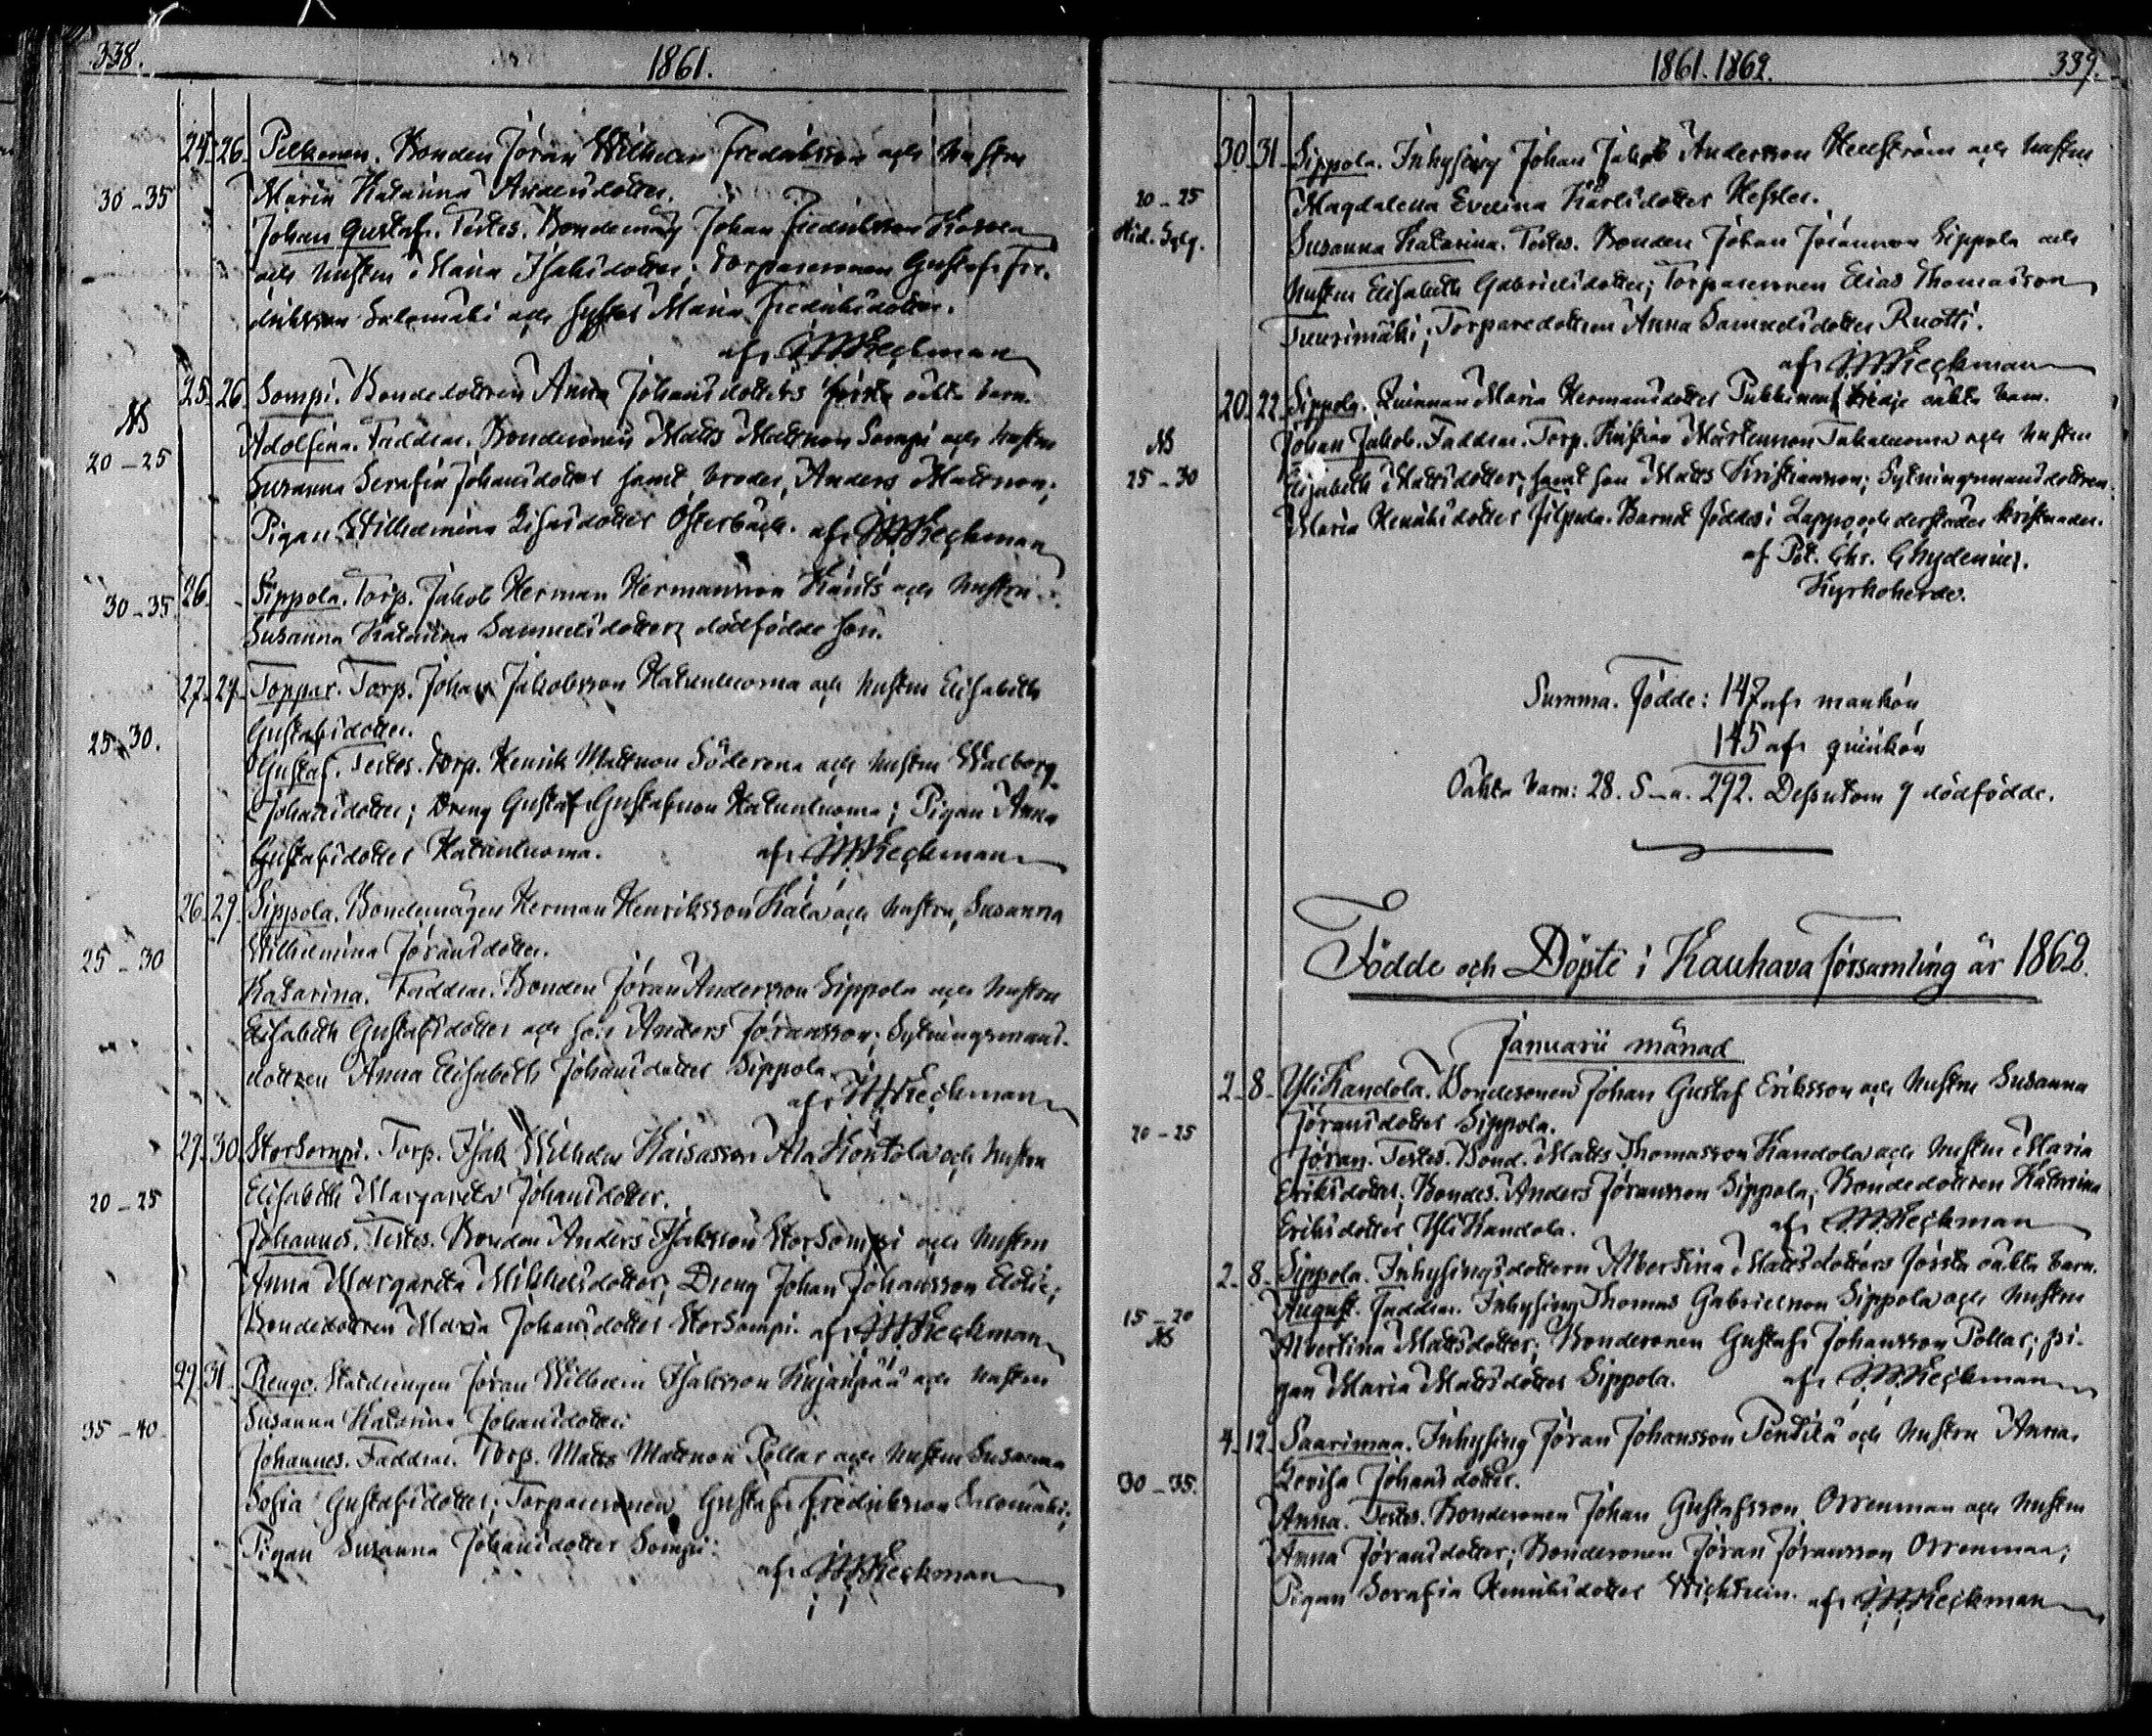 338.
1861.
24. 26. Pelkonen. Bonden Jöran Wilhelm Fredriksson och hustru
30-35 Maria Katarina Andersdotter.
Johan Gustaf. Testes. Bondemåg Johan Fredriksson
och hustru Maria Isaksdotter; Torparesonen Gustaf Fre-
driksson Salomäki och syster Maria Fredriksdotter.
af
25. 26. Sompi. Bondedottren Anna Johansdotters första oäkta barn.
NS
Adolfina. Faddrar. Bondesonen Matts Mattsson Sompi och hustru
20-25
Susanna Serafia Johansdotter samt broder, Anders Mattsson;
Pigan Wilhelmina Österback. af
26. Sippola. Torp. Jakob Herman Hermansson och hustru
30-35
Susanna Katarina Samuelsdotters dödfödde son.
27. 29. Toppar. Torp. Johan Jakobsson Katunluoma och hustru Elisabeth
Gustafsdotter.
25-30.
Gustaf. Testes. Torp. Henrik Mattsson och hustru Walborg
Johansdotter; Dreng Gustaf Gustafsson Katunluoma; Pigan Anna
Gustafsdotter Katunluoma. af
26. 29. Sippola. Bondemågen Herman Henriksson och hustru, Susanna
Wilhelmina Jöransdotter.
25-30
Katarina. Faddrar. Bonden Jöran Andersson Sippola och hustru
Elisabeth Gustafsdotter och son Anders Jöransson; Sytningsmans-
dottren Anna Elisabeth Johansdotter Sippola.
af
27. 30. StorSompi. Torp. Isak Wilhelm Kaisasson AlaKontola och hustru
Elisabeth Margareta Johansdotter.
20-25
Johannes. Testes. Bonden Anders Isaksson StorSompi och hustru
Anna Margareta Mikkelsdotter; Dreng Johan Johansson
Bondedottren Maria Johansdotter StorSompi. af
29. 31. Rengo. Jöran Wilhelm Isaksson Kujanpää och hustru
Susanna Katarina Johansdotter.
35-40.
Johannes. Faddrar. Torp. Matts Mattsson Pollar och hustru Susanna
Sofia Gustafsdotter; Torparesonen Gustaf Fredriksson Salomäki;
Pigan Susanna Johansdotter Sompi.
af
1861. 1862.
339.
30. 31. Sippola. Inhysing Johan Jakob Andersson Hedström och hustru
20-25
Magdalena Evelina Karlsdotter Hessler.
Susanna Katarina. Testes. Bonden Johan Jöransson Sippola och
hustru Elisabeth Gabrielsdotter; Torparesonen Elias Thomasson
Tuurimäki; Torparedottren Anna Samuelsdotter Ruotti.
af
20. 22. Sippola. Quinnan Maria Hermansdotter Pukkinens tredje oäkta barn.
NS
Johan Jakob. Faddrar. Torp. Kristian Mårtensson och hustru
25-30
Elisabeth Mattsdotter, samt son Matts Kristiansson; Sytningsmansdottren
Maria Henriksdotter Jilpula. Barnet föddes i Lappo och derstädes kristnades.
af Pet. Chr. Chydenius.
Kyrkoherde.
Summa. Födde: 147 af mankön
145 af quinkön
Oäkta barn: 28. S-a. 292. Dessutom 9 dödfödde.
Födde och Döpte i Kauhava församling år 1862.
Januarii månad
2. 8. YliKandola. Bondesonen Johan Gustaf Eriksson och hustru Susanna
Jöransdotter Sippola.
20-25
Jöran. Testes. Bond. Matts Thomasson Kandola och hustru Maria
Eriksdotter; Bondes. Anders Jöransson Sippola; Bondedottren Katarina
Eriksdotter YliKandola. af
2. 8. Sippola. Inhysingsdottern Albertina Mattsdotters första oäkta barn.
August. Faddrar. Inhysing Thomas Gabrielsson Sippola och hustru
15-20
NS
Albertina Mattsdotter; Bondesonen Gustaf Johansson Pollar; pi-
gan Maria Mattsdotter Sippola. af
4. 12. Saarimaa. Inhysing Jöran Johansson Penttilä och hustru Anna
Lovisa Johansdotter.
30-35.
Anna. Testes. Bondesonen Johan Gustafsson Orrenmaa och hustru
Anna Jöransdotter; Bondesonen Jöran Jöransson Orrenmaa;
Pigan Serafia Henriksdotter af